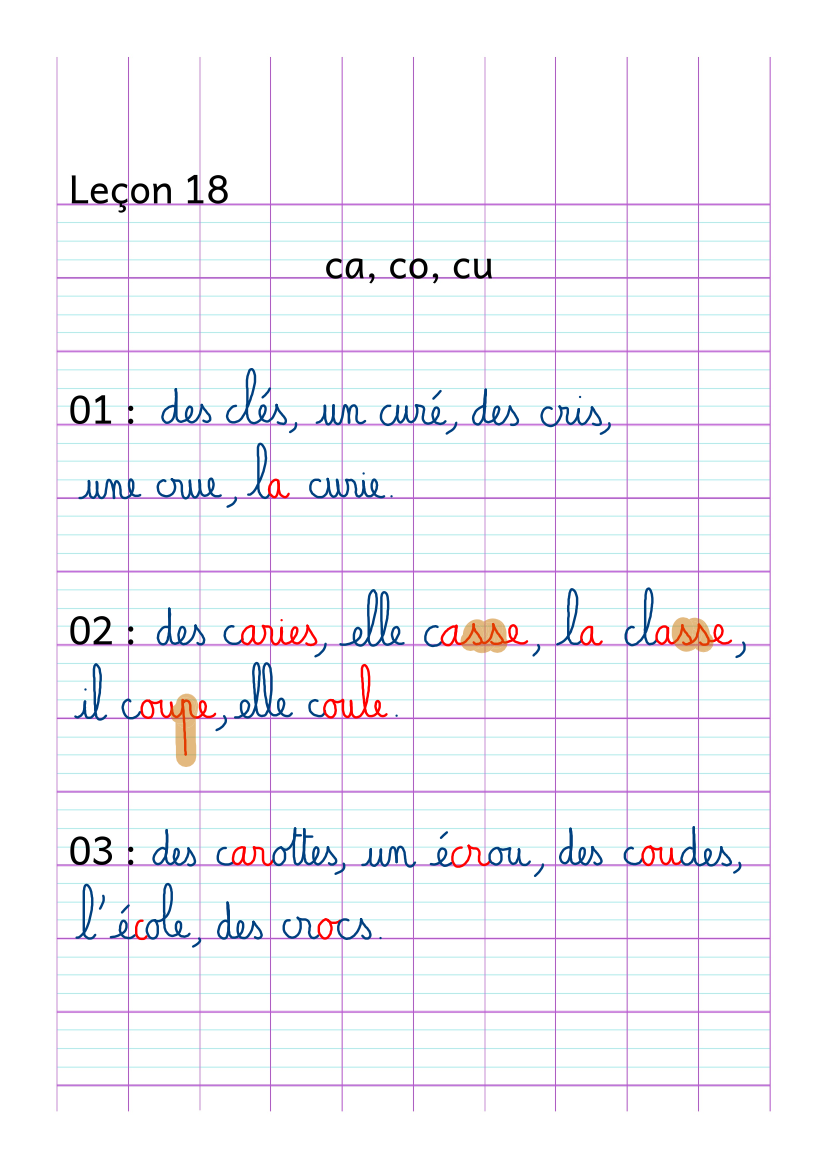 Leçon 18
ca, co, cu
01 : des clés, un curé, des cris,
une crue, la curie.
02 : des caries, elle casse, la classe,
il coupe, elle coule.
03 : des carottes, un écrou, des coudes,
l'école, des crocs.